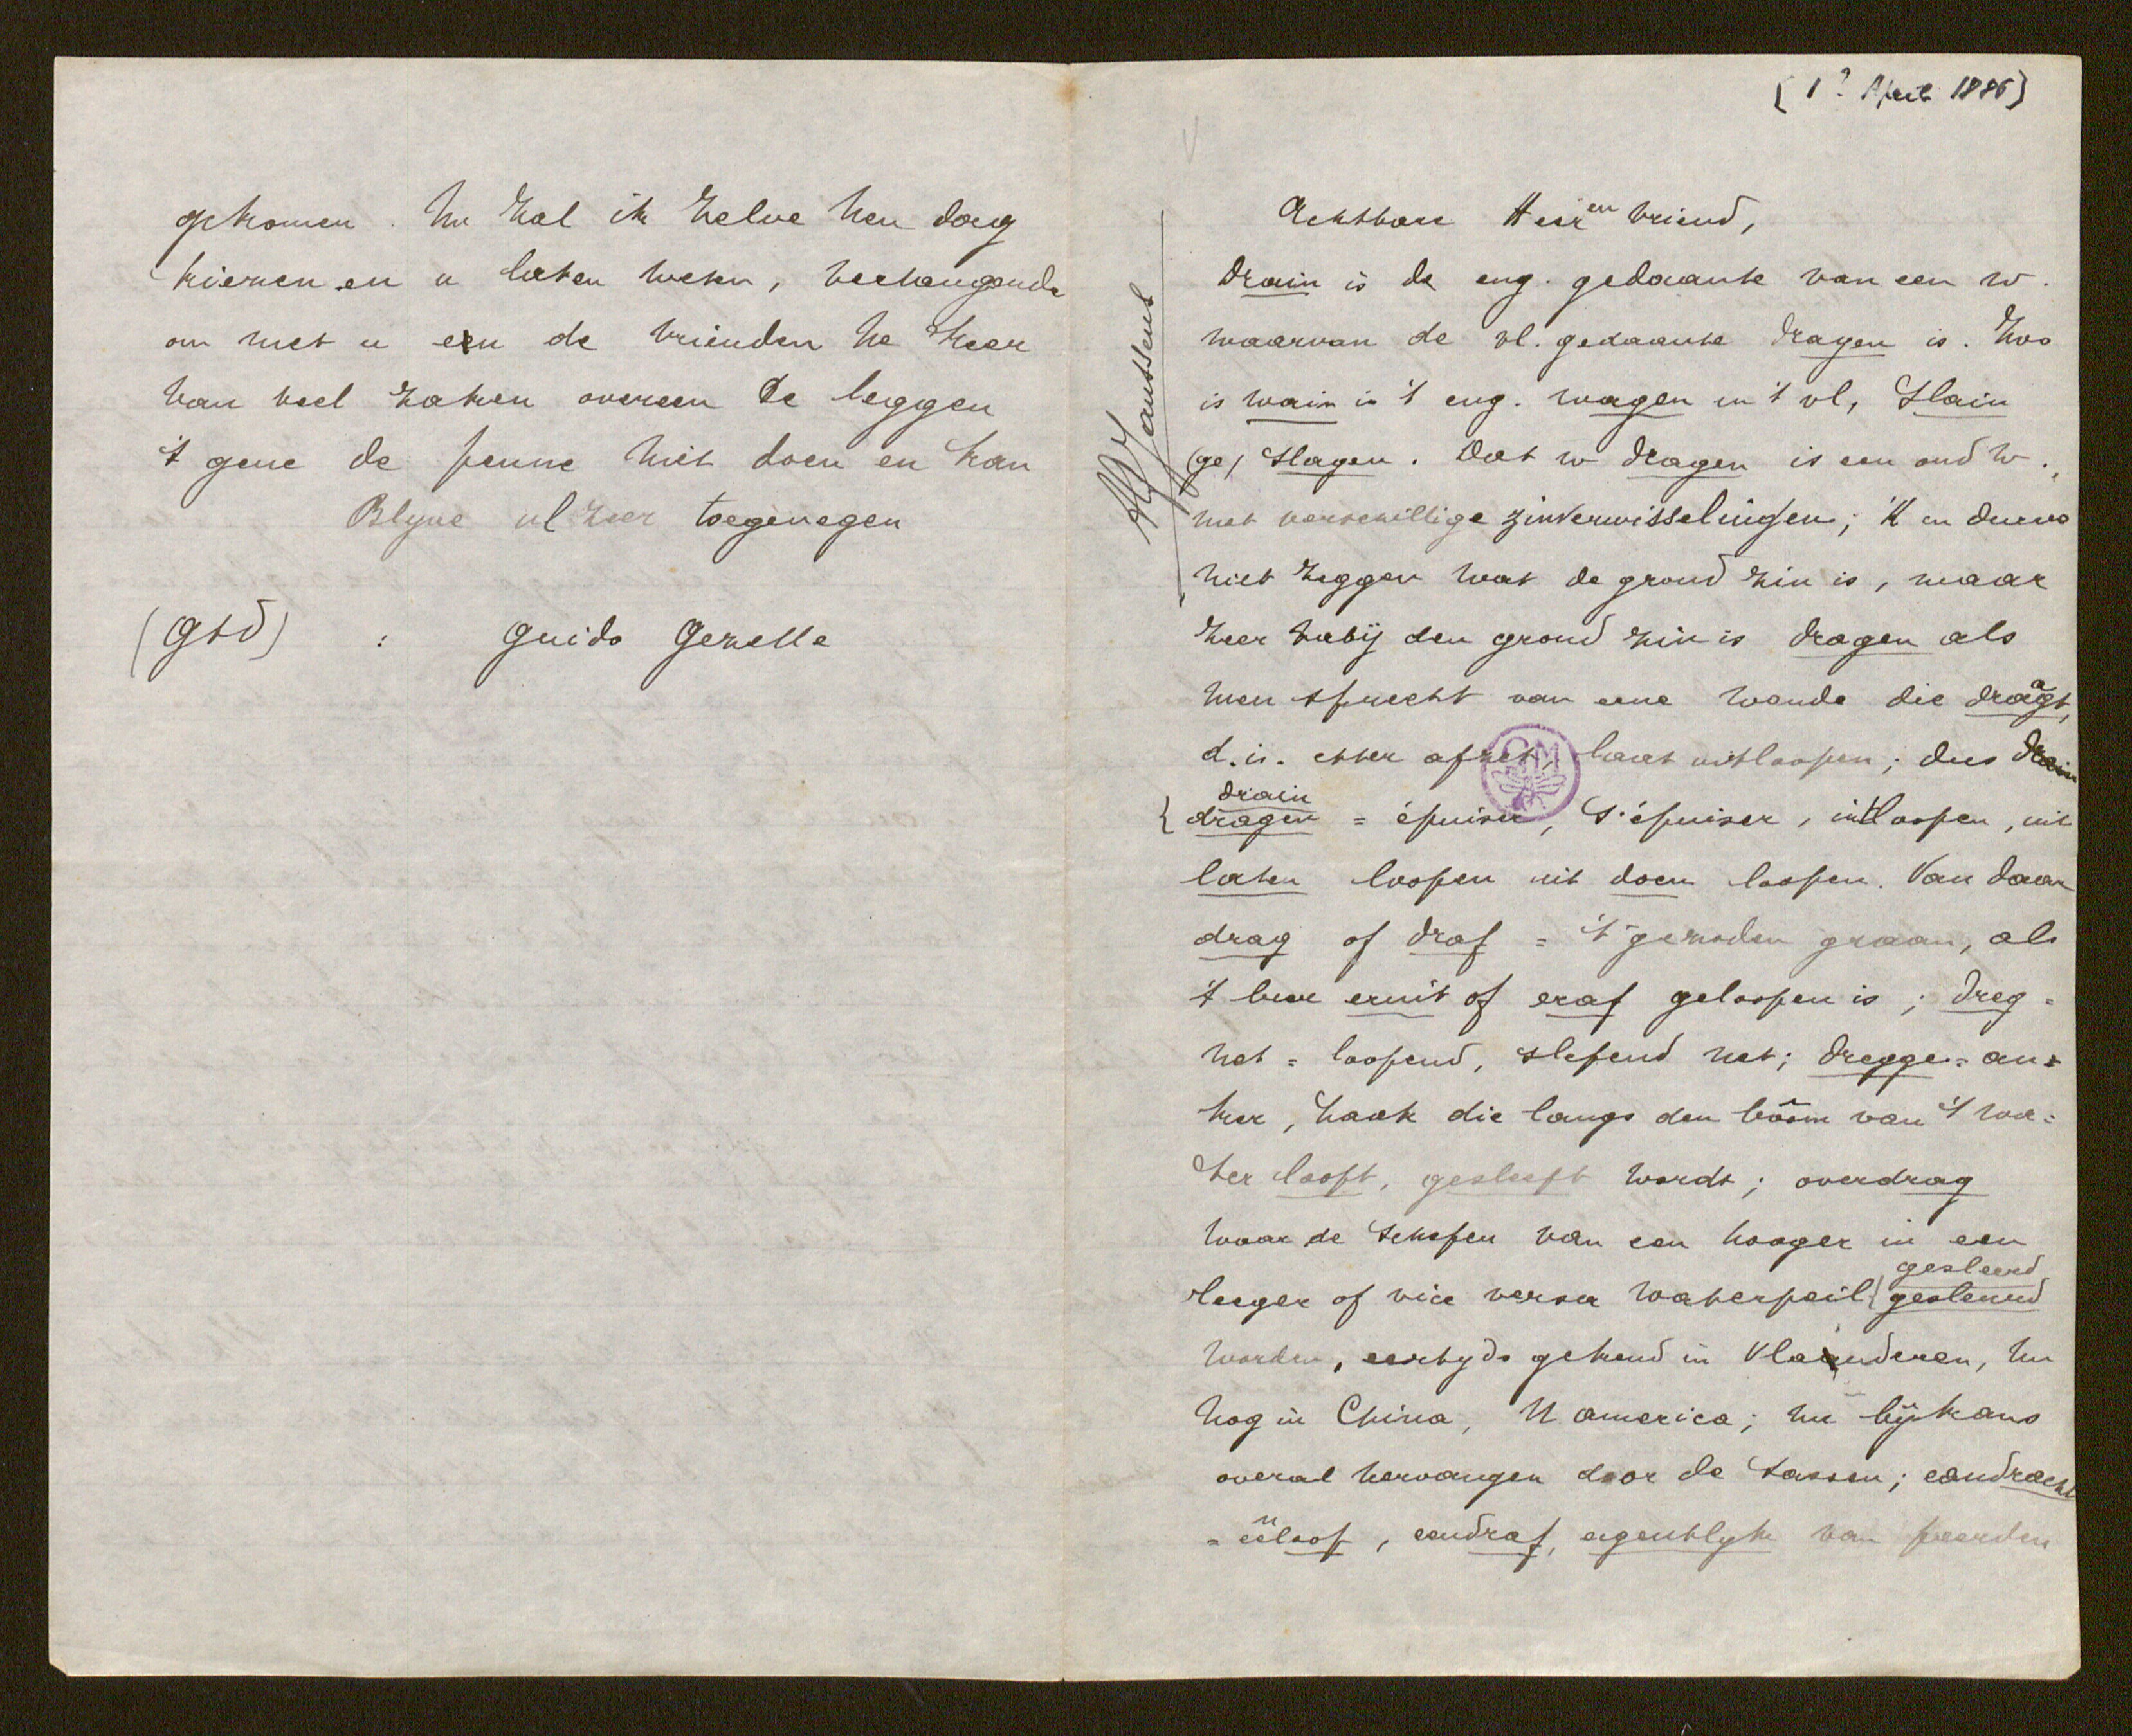 [1? April 1886]
Achtbare Heer en Vriend,
drain is de eng. gedaante van een w.
waarvan de vl. gedaante dragen is. Zoo
is wain in 't eng. wagen in 't vl, slain
(ge) slagen. Dat w dragen is een oud w.,
met verschillige zinverwisselingen; 'K en durve
niet zeggen wat de grond zin is, maar
zeer naby den grond zin is dragen als
men spreekt van eene wonde die draagt,
d.i. etter afzet, laat uitloopen; dus drain
drain
{ dragen = épuiser, s'épuiser, uitloopen, uit
laten loopen uit doen loopen. Van daar
drag of draf = 't gezoden graan, als
't bier eruit of eraf geloopen is; dreg=
net = loopend, slepend net; dregge=an=
ker, haak die langs den boôm van 't wa=
ter loopt, gesleept wordt; overdrag
waar de schepen van een hooger in een
gesleerd
leeger of vice versa waterpeil { gesleurd
worden, eertyds gekend in Vlaanderen, nu
nog in China, N america; nu bykans
overal vervangen door de sassen; eendracht
= eenloop, eendraf, eigentlyk van peerden
Alf Janssens
gekomen. Nu zal ik zelve nen dag
kiezen en u laten weten, verlangende
om met u en de vrienden ne keer
van veel zaken overeen te leggen
't gene de penne niet doen en kan
Blyve ul zeer toegenegen
(Gtd) : Guido Gezelle
GM